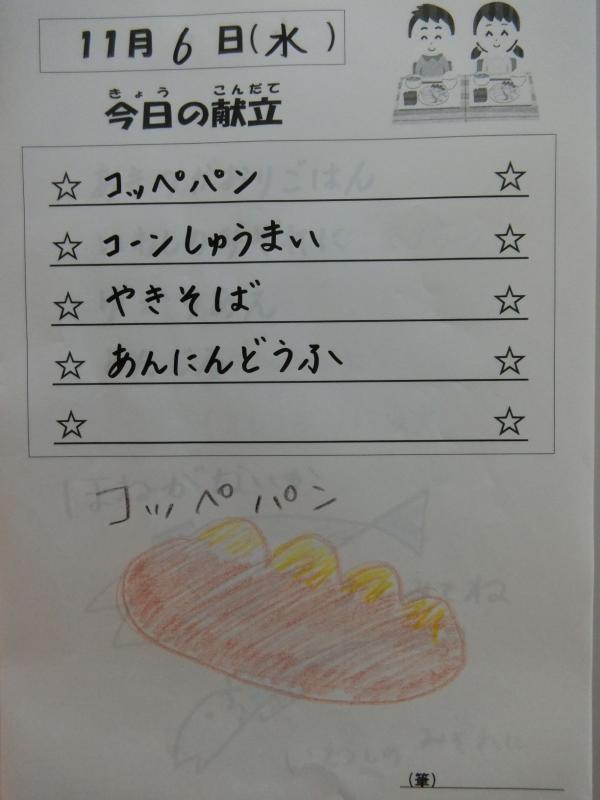 11月6日(水)
きょう こんだて
今日の献立
☆ コッペパン ☆
☆ コーンしゅうまい ☆
☆ やきそば ☆
☆ あんにんどうふ ☆
☆ ☆
コッペパン
(筆)